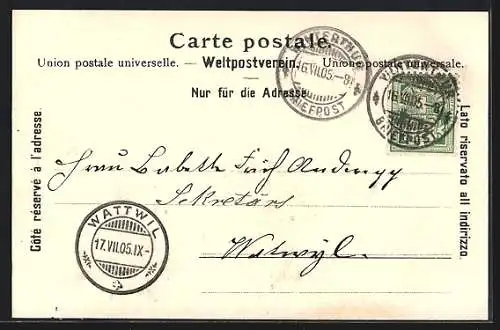 Carte postale.
Union postale universelle. — Weltpostverein. — Unione postale universale.
Nur für die Adresse
Côté réservé à l'adresse.
Lato riservato all indirizzo.
WINTERTHUR
16.VII.05.-8
BRIEFPOST
WINTERTHUR
16.VII.05.-8
BRIEFPOST
Frau Babette
Sekretärs
Watwyl.
WATTWIL
17.VII.05.IX-